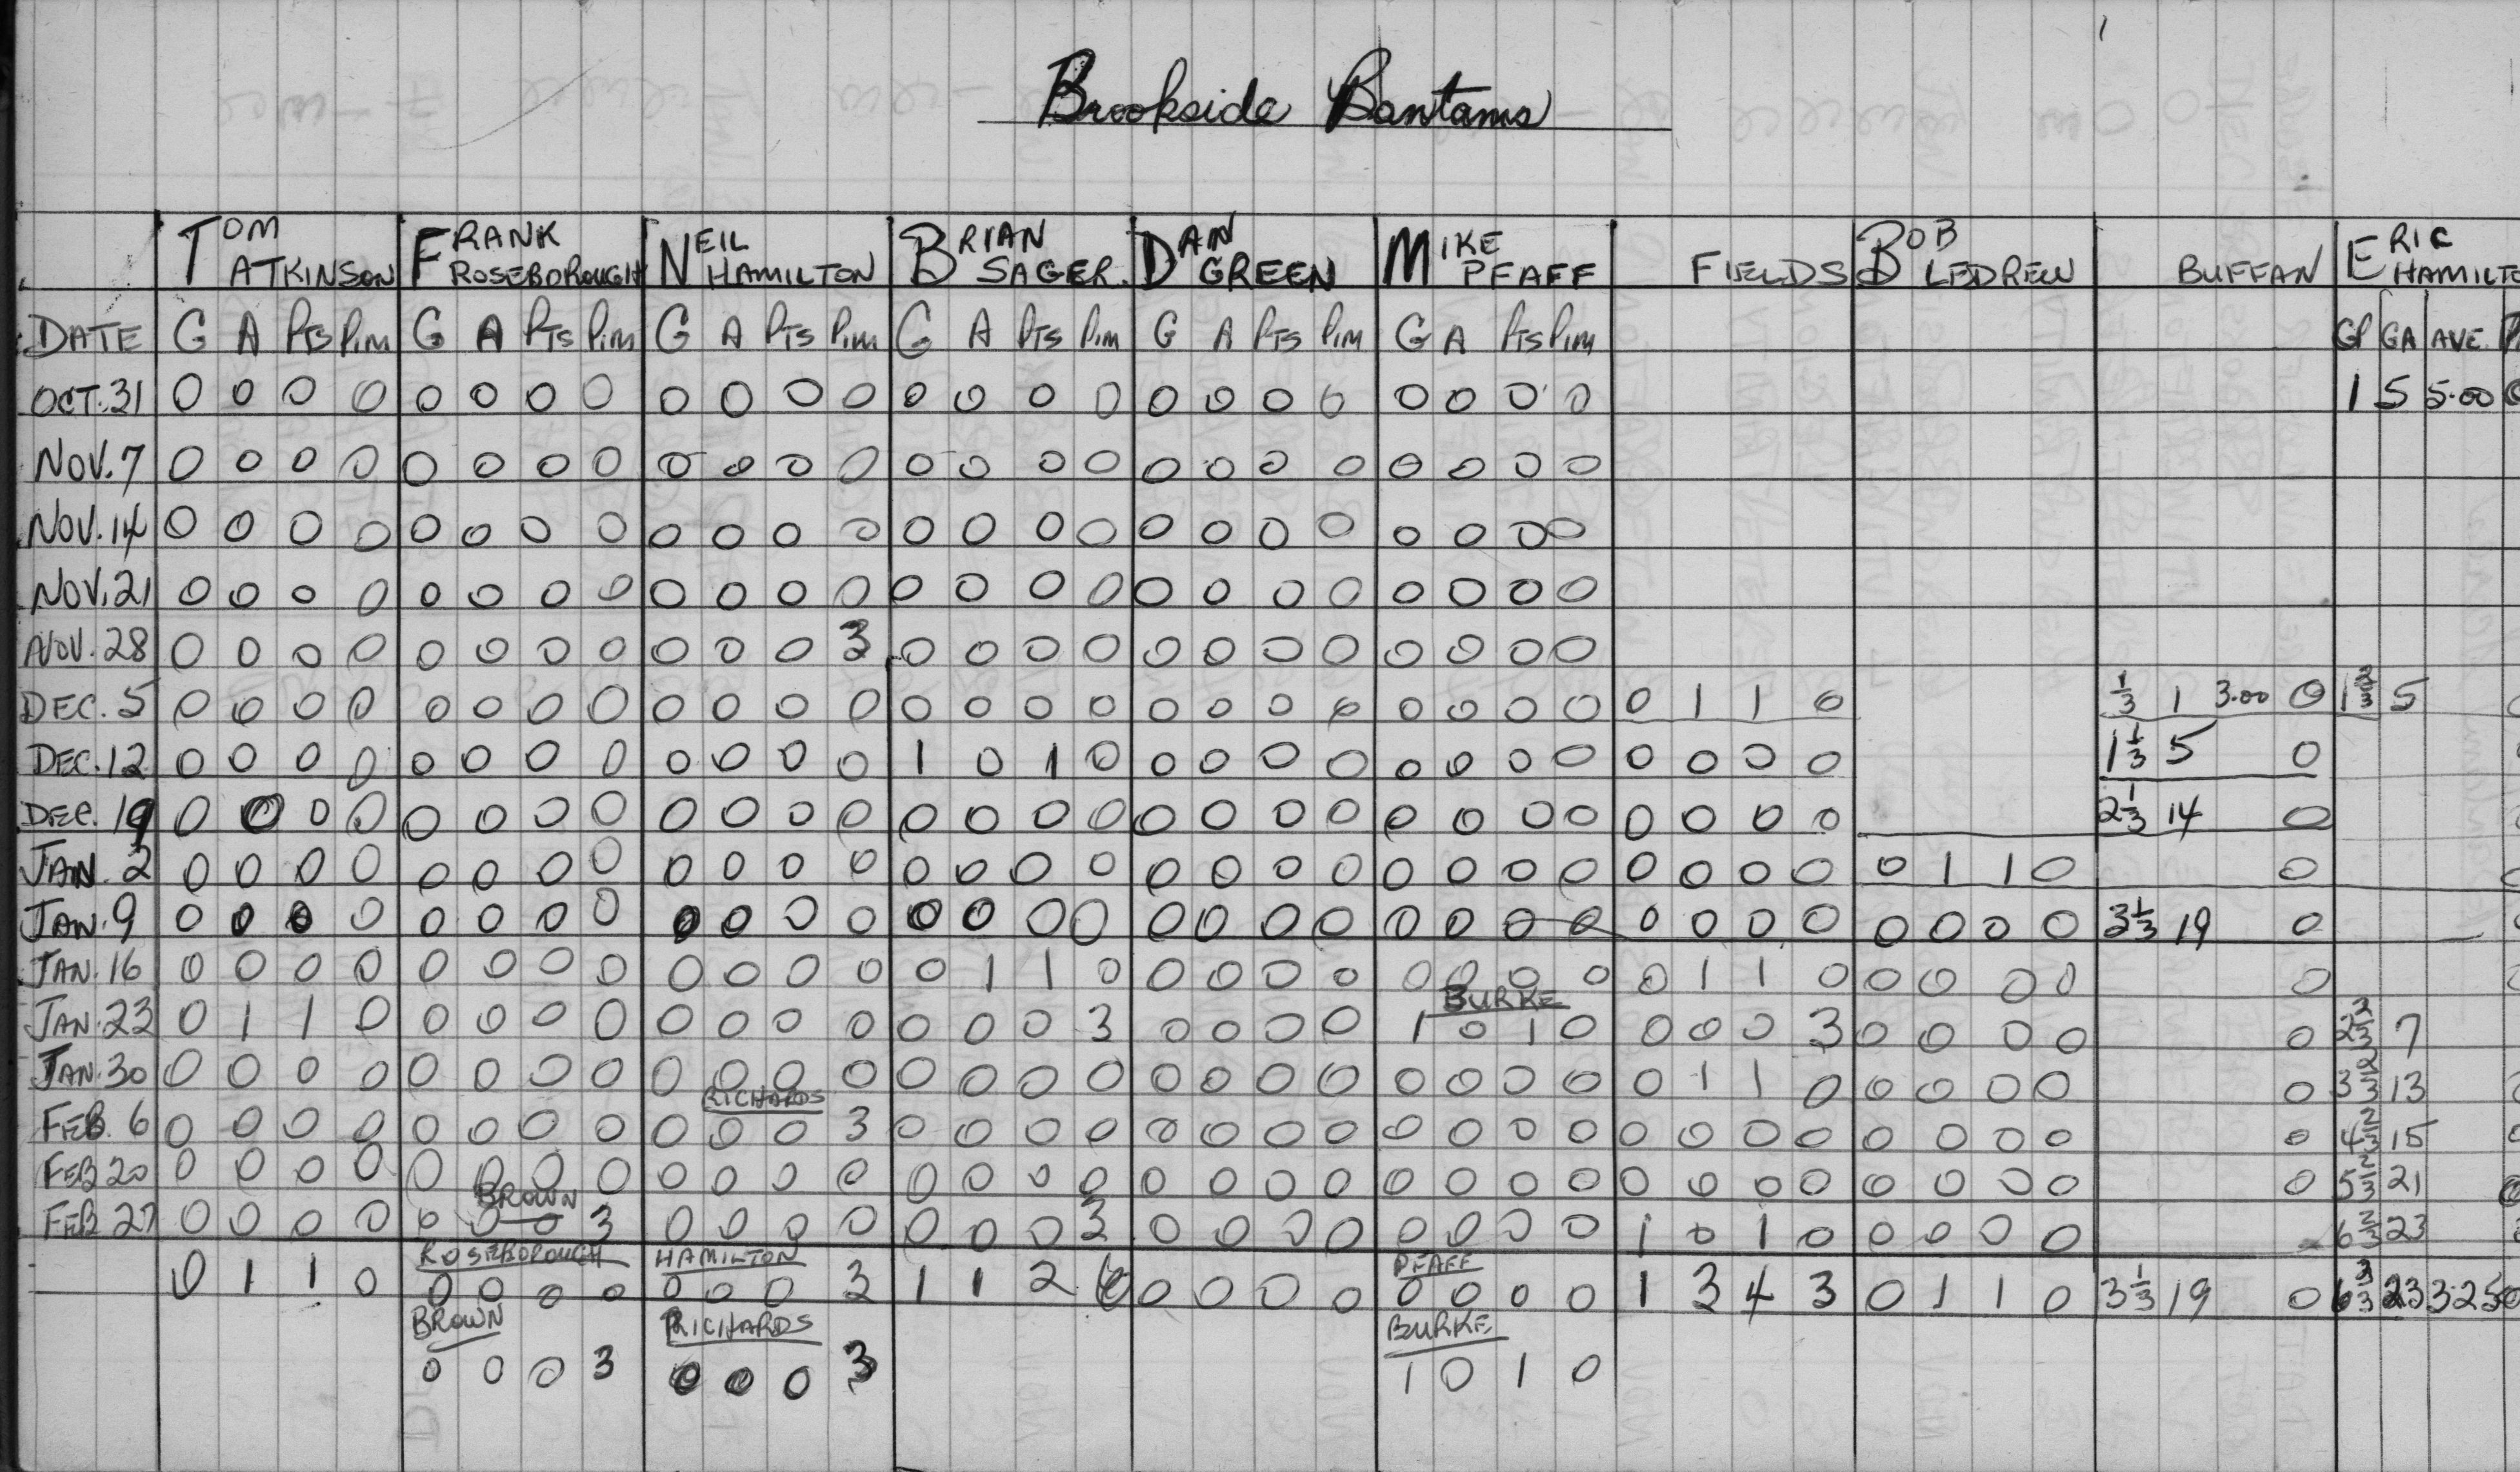 Brookside Bantams
TOM ATKINSON FRANK ROSEBOROUGH NEIL HAMILTON BRIAN SAGER. DAN GREEN MIKE PFAFF FIELDS BOB LEDREW BUFFAN ERIC HAMILTO
DATE G A PTS P.IM G A PTS P.IM G A PTS P.IM G A PTS P.IM G A PTS P.IM G A PTS P.IM GP GA AVE. P
OCT.31 0 0 0 0 0 0 0 0 0 0 0 0 0 0 0 0 0 0 0 0 0 0 0 0 1 5 5.00 0
NOV.7 0 0 0 0 0 0 0 0 0 0 0 0 0 0 0 0 0 0 0 0 0 0 0 0
NOV.14 0 0 0 0 0 0 0 0 0 0 0 0 0 0 0 0 0 0 0 0 0 0 0 0
NOV.21 0 0 0 0 0 0 0 0 0 0 0 0 0 0 0 0 0 0 0 0 0 0 0 0
NOV.28 0 0 0 0 0 0 0 0 0 0 0 3 0 0 0 0 0 0 0 0 0 0 0 0
DEC.5 0 0 0 0 0 0 0 0 0 0 0 0 0 0 0 0 0 0 0 0 0 0 0 0 0 1 1 0 1/3 1 3.00 0 1 2/3 5
DEC.12 0 0 0 0 0 0 0 0 0 0 0 0 1 0 1 0 0 0 0 0 0 0 0 0 0 0 0 0 1 1/3 5 0
DEC.19 0 0 0 0 0 0 0 0 0 0 0 0 0 0 0 0 0 0 0 0 0 0 0 0 0 0 0 0 2 1/3 14 0
JAN.2 0 0 0 0 0 0 0 0 0 0 0 0 0 0 0 0 0 0 0 0 0 0 0 0 0 0 0 0 0 1 1 0 0
JAN.9 0 0 0 0 0 0 0 0 0 0 0 0 0 0 0 0 0 0 0 0 0 0 0 0 0 0 0 0 0 0 0 0 3 1/3 19 0
JAN.16 0 0 0 0 0 0 0 0 0 0 0 0 0 1 1 0 0 0 0 0 0 0 0 0 0 1 1 0 0 0 0 0 0
BURKE
JAN.23 0 1 1 0 0 0 0 0 0 0 0 0 0 0 0 3 0 0 0 0 1 0 1 0 0 0 0 3 0 0 0 0 0 2 2/3 7
JAN.30 0 0 0 0 0 0 0 0 0 0 0 0 0 0 0 0 0 0 0 0 0 0 0 0 0 1 1 0 0 0 0 0 0 3 2/3 13
RICHARDS
FEB.6 0 0 0 0 0 0 0 0 0 0 0 3 0 0 0 0 0 0 0 0 0 0 0 0 0 0 0 0 0 0 0 0 0 4 2/3 15
FEB 20 0 0 0 0 0 0 0 0 0 0 0 0 0 0 0 0 0 0 0 0 0 0 0 0 0 0 0 0 0 0 0 0 0 5 2/3 21
BROWN
FEB 27 0 0 0 0 0 0 0 3 0 0 0 0 0 0 0 3 0 0 0 0 0 0 0 0 1 0 1 0 0 0 0 0 6 2/3 23
ROSEBOROUGH HAMILTON PFAFF
0 1 1 0 0 0 0 0 0 0 0 3 1 1 2 6 0 0 0 0 0 0 0 0 1 3 4 3 0 1 1 0 3 1/3 19 0 6 2/3 23 3.25
BROWN RICHARDS BURKE
0 0 0 3 0 0 0 3 1 0 1 0